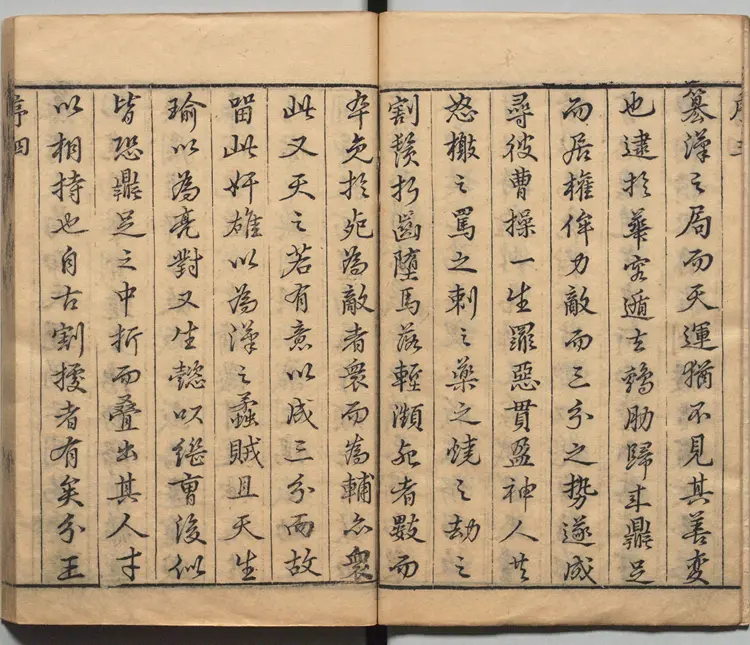 序三
篡漢之局而天運猶不見其善変
也逮於華容遁去鷄肋歸来鼎足
而居權侔力敵而三分之勢遂成
尋彼曹操一生罪惡貫盈神人共
怒檄之罵之刺之藥之燒之劫之
割鬚折齒墮馬落塹瀕死者數而
卒免於死為敵者衆而為輔亦衆
此又天之若有意以成三分而故
留此奸雄以為漢之蟊賊且天生
瑜以為亮對又生懿以繼曹後似
皆恐鼎足之中折而疊出其人才
以相持也自古割據者有矣分王
序四